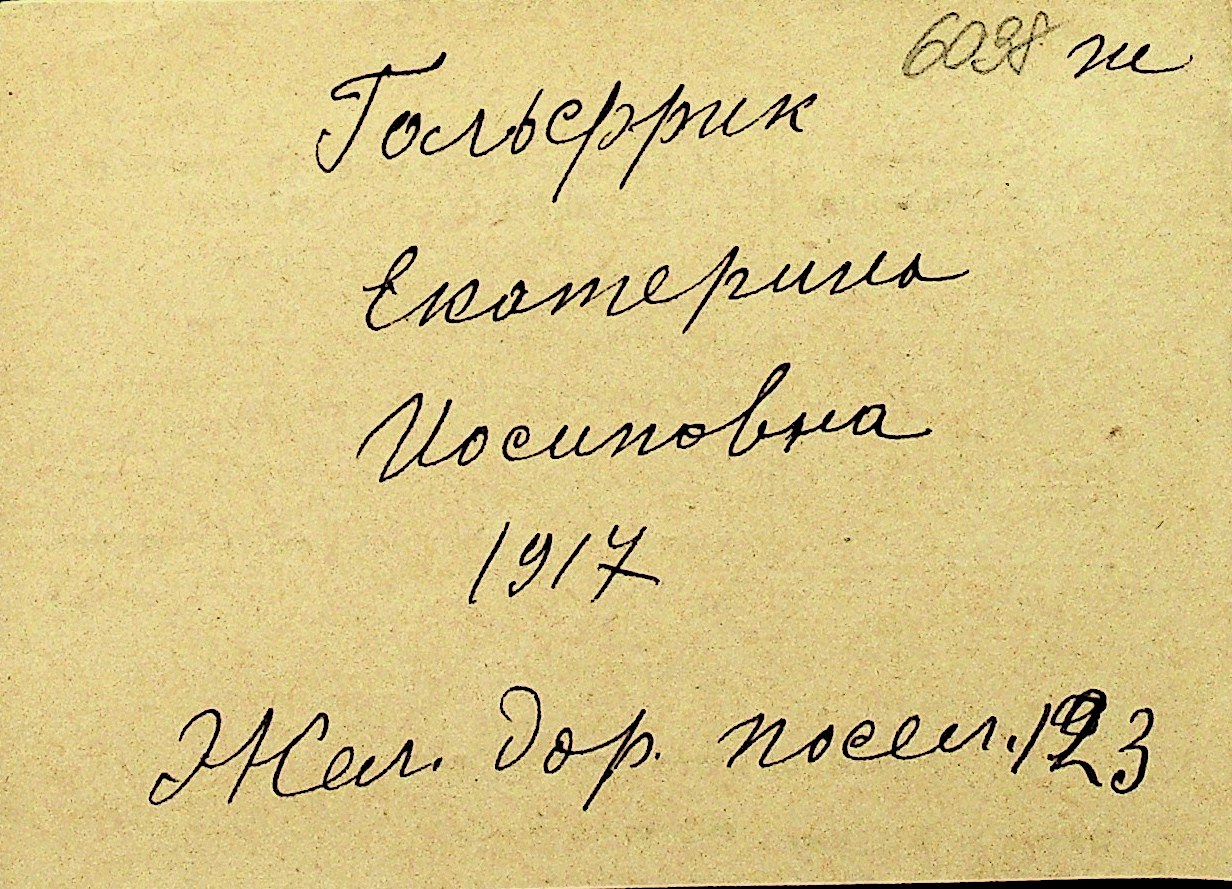 6098 ж
Гольеррик
Екатерина
Иосиповна
1917
Жел. дор. посел. 123